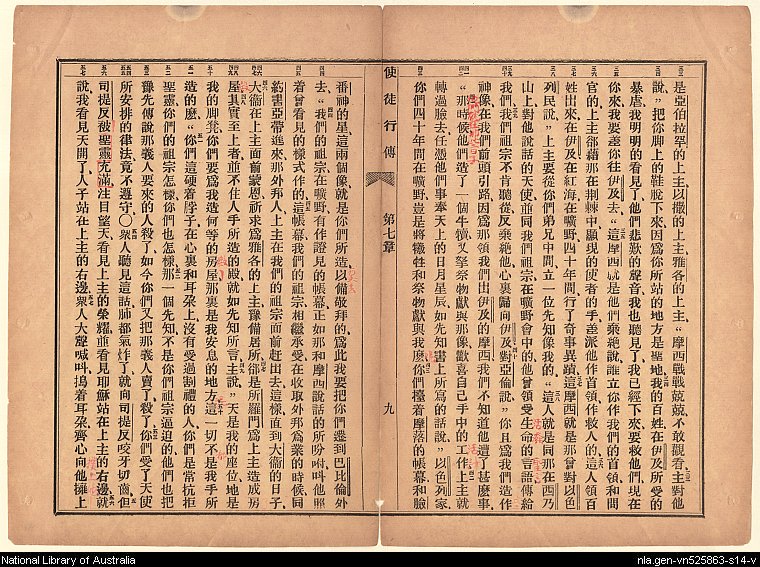 是亞伯拉罕的上主以撒的上主雅各的上主"摩西戰戰兢兢不敢觀看主對他
說"把你脚上的鞋脫下來因爲你所站的地方是聖地我的百姓在伊及所受的
暴虐我明明的看見了他們悲歎的聲音我也聽見了我已經下來要救他們現在
你來我要差你往伊及去"這摩西就是他們棄絶說誰立你作我們的首領和
官的上主却藉那在荊棘中顯現的使者的手差派他作首領作救人的這人領百
姓出來在伊及在紅海在曠野四十年間行了奇事異蹟這摩西就是那曾對以色
列民說"上主要從你們弟兄中間立一位先知像我的"這人就是同那在西乃
山上對他說話的天使並同我們祖宗在曠野會中的他曾領受生命的言語傳給
我們我們祖宗不肯聽從反棄絶他心裏歸向伊及對亞倫說"你且爲我們造作
神像在我們前頭引路因爲那領我們出伊及的摩西我們不知道他遭了甚麽事
"那時候他們造了一個牛犢又拏祭物獻與那像歡喜自己手中的工作上主就
轉過臉去任憑他們事奉天上的日月星辰如先知書上所寫的話說"以色列家
你們四十年間在曠野豈是將犧牲和祭物獻與我麽你們擡着摩落的帳幕和臉
使徒行傳 第七章 九
番神的星這兩個像就是你們所造以備敬拜的爲此我要把你們遷到巴比倫外
去"我們的祖宗在曠野有作證見的帳幕正如那和摩西說話的所吩咐叫他照
着曾看見的樣式作的這帳幕我們的祖宗相繼承受在收取外邦爲業的時候同
約書亞帶進來那外邦人上主在我們的祖宗面前趕出去這樣直到大衞的日子
大衞在上主面前蒙恩祈求爲雅各的上主豫備居所却是所羅門爲上主造成房
屋其實至上者並不住人手所造的殿就如先知所言主說"天是我的座位地是
我的脚凳你們要爲我造何等的房屋那裏是我安息的地方這一切不是我手所
造的麽"你們這硬着脖子在心裏和耳朶上沒有受過割禮的人你們是常抗拒
聖靈你們的祖宗怎樣你們也怎樣那一個先知不是你們祖宗逼迫的他們也把
豫先傳說那義人要來的人殺了如今你們又把那義人賣了殺了你們受了天使
所安排的律法竟不遵守〇衆人聽見這話肺都氣炸了就向司提反咬牙切齒但
司提反被聖靈充滿注目望天看見上主的榮耀並看見耶穌站在上主的右邊就
說我看見天開了人子站在上主的右邊衆人大聲喊叫摀着耳朶齊心向他擁上
National Library of Australia
nla.gen-vn525863-s14-v